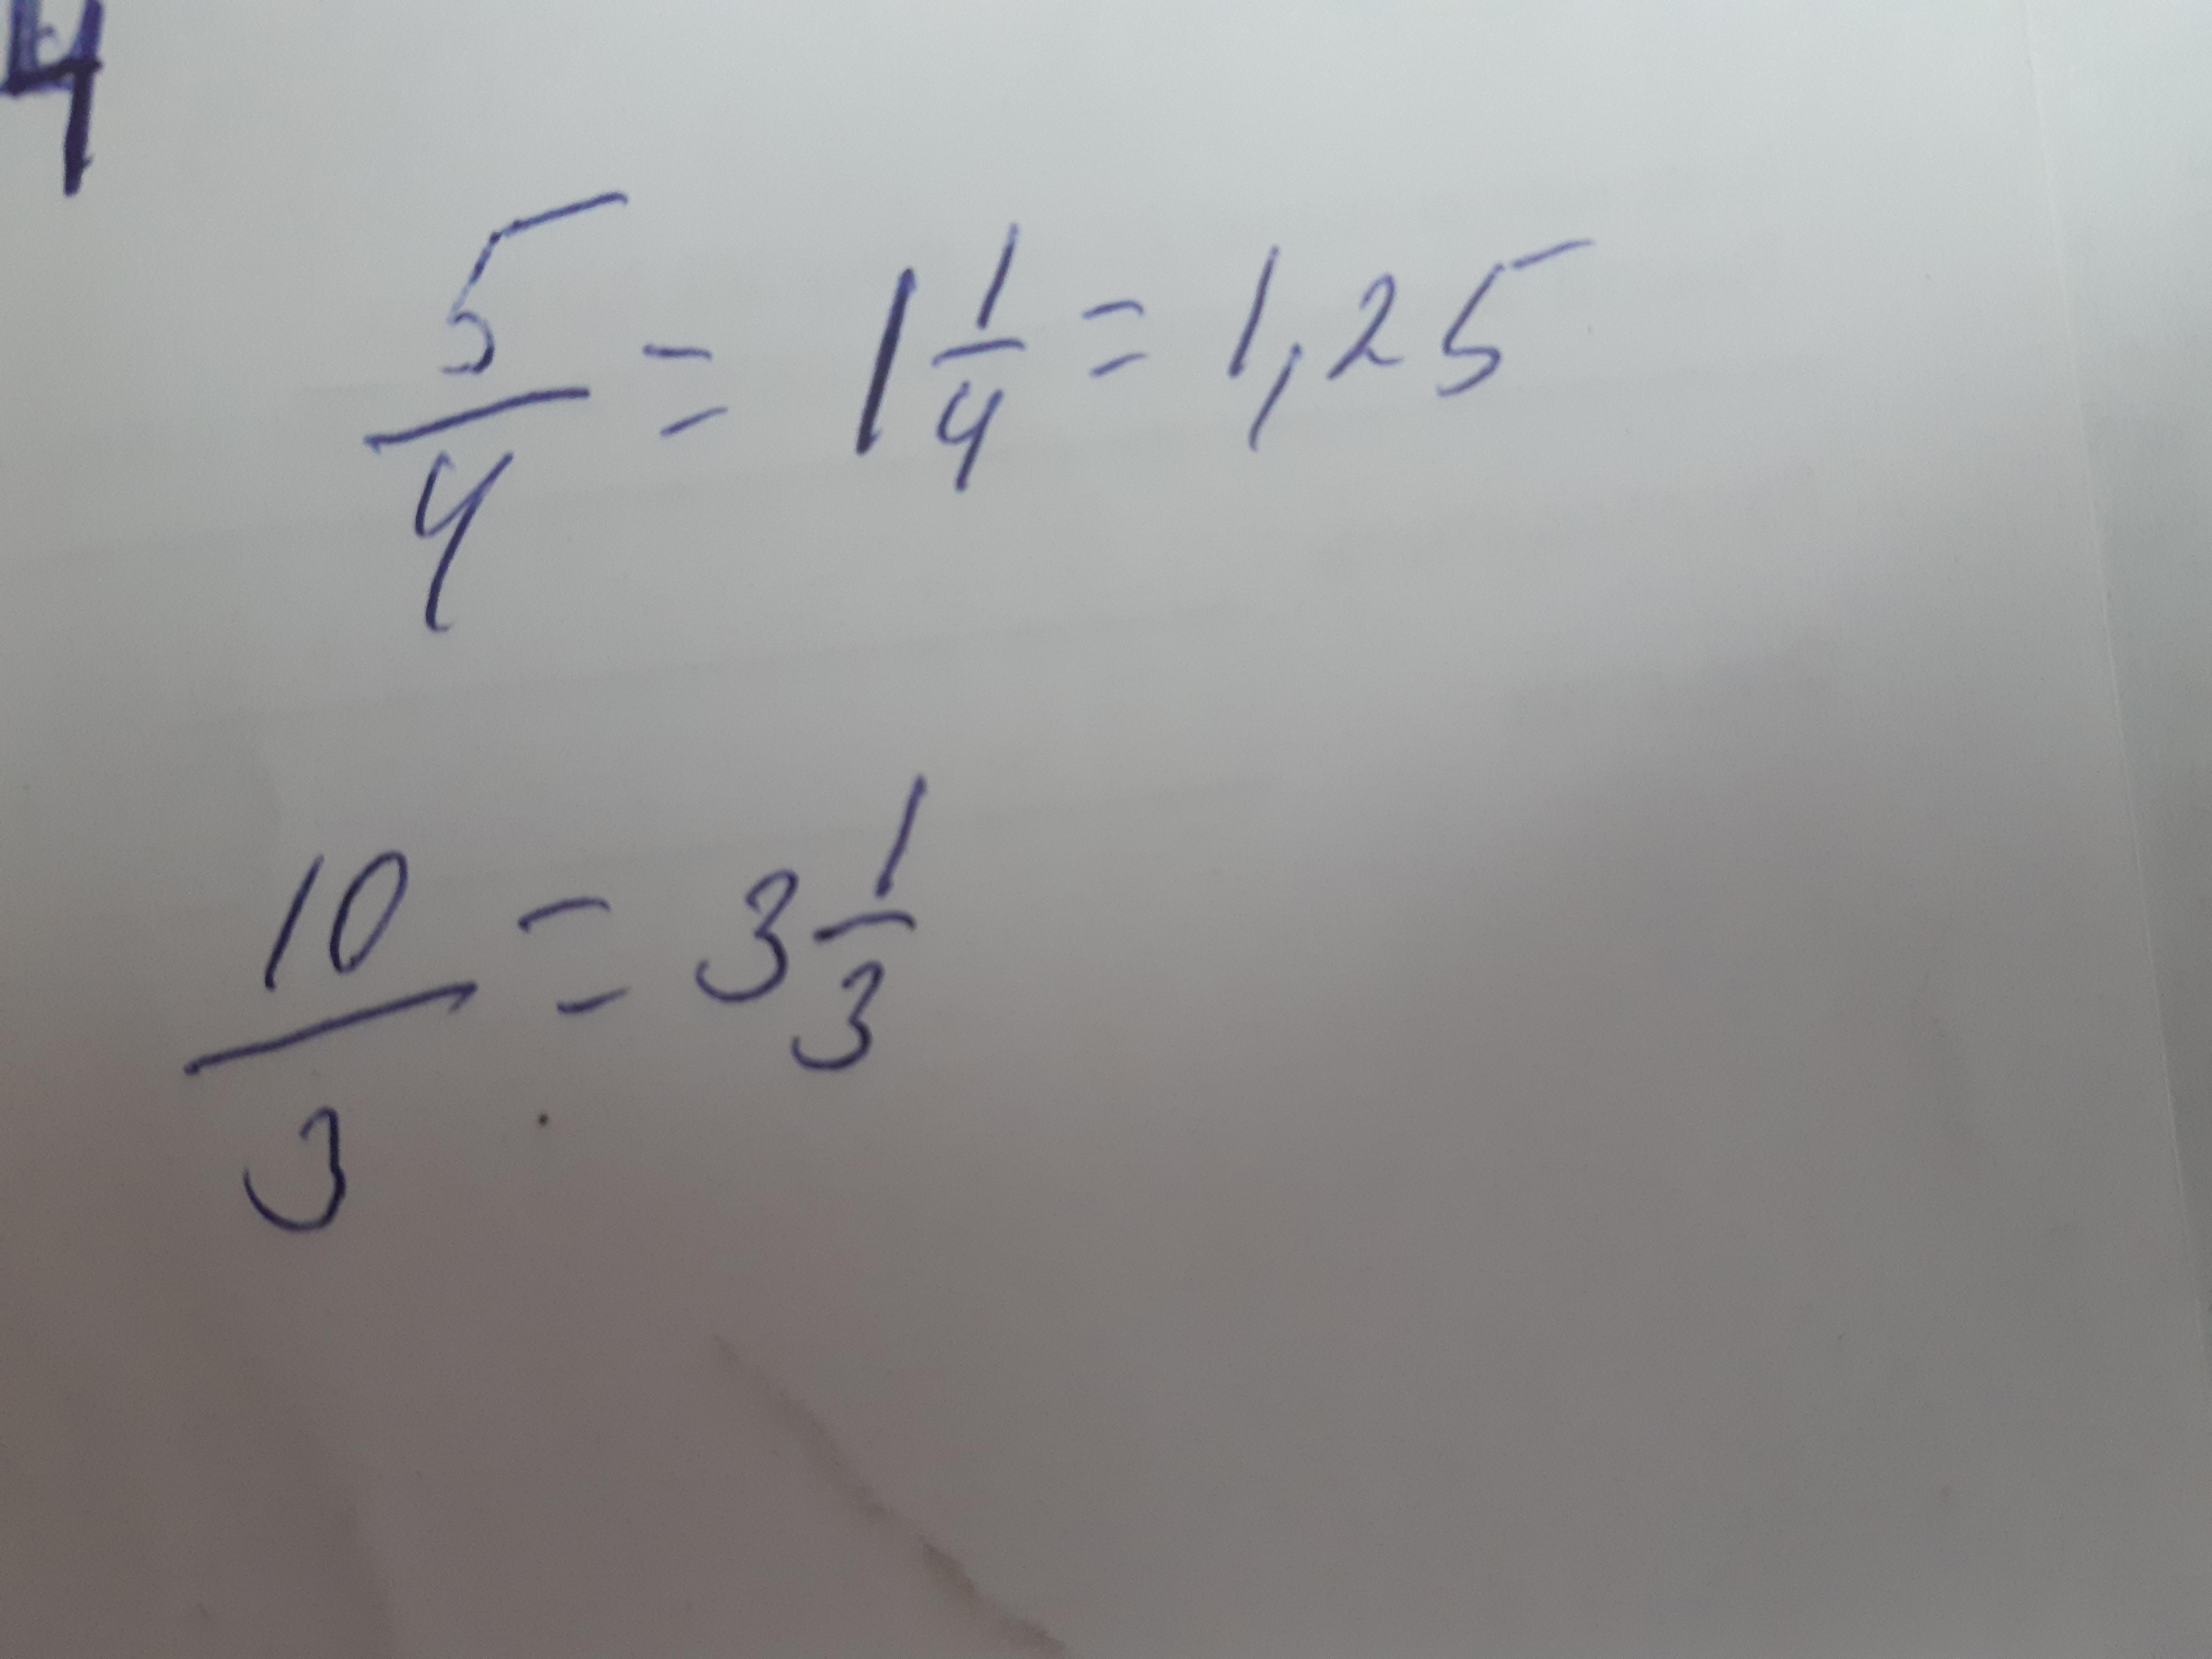 4
5/4 = 1 1/4 = 1,25
10/3 = 3 1/3